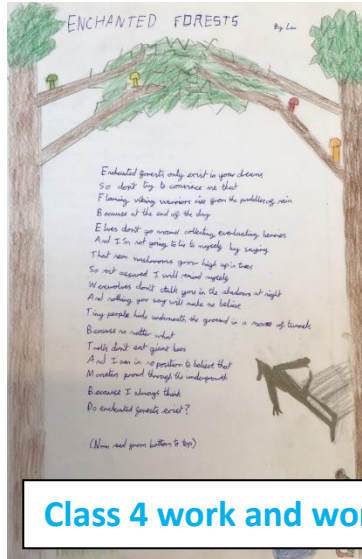 ENCHANTED FORESTS
By Lia
Enchanted forests only exist in your dreams
So don't try to convince me that
Flaming viking warriors rise from the puddles of rain
Because at the end of the day
Elves don't go around collecting everlasting berries
And I'm not going to lie to myself by saying
That neon mushrooms grow high up in trees
So rest assured I will remind myself
Werewolves don't stalk you in the shadows at night
And nothing you say will make me believe
Tiny people hide underneath the ground in a maze of tunnels
Because no matter what
Trolls don't eat giant bees
And I am in no position to believe that
Monsters prowl through the undergrowth
Because I always think
Do enchanted forests exist?
(Now read from bottom to top)
Class 4 work and wor